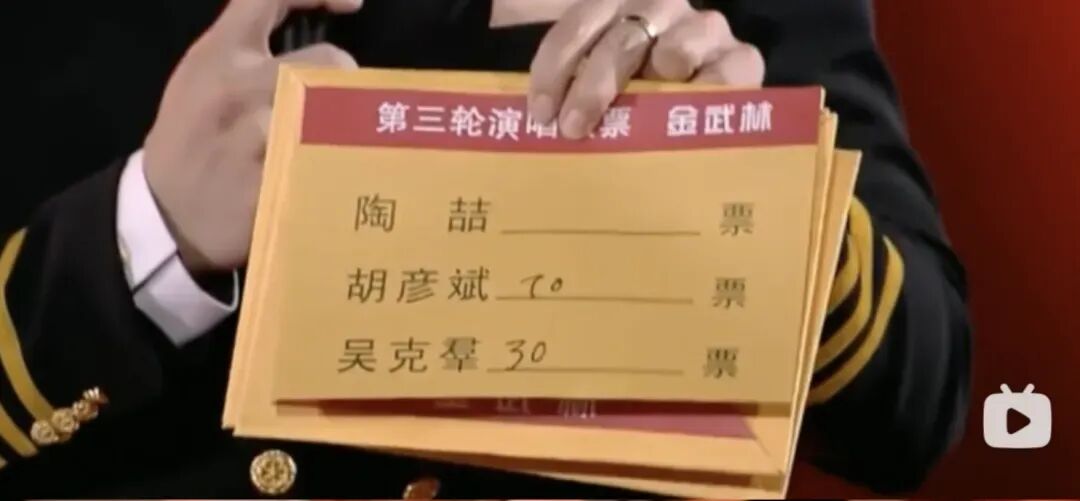 第三轮演唱 票 金武林
陶喆 票
胡彦斌 70 票
吴克羣 30 票
金武林